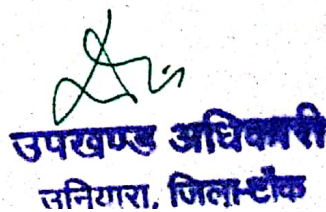 उपखण्ड अधिकारी
उनियारा, जिला-टोंक